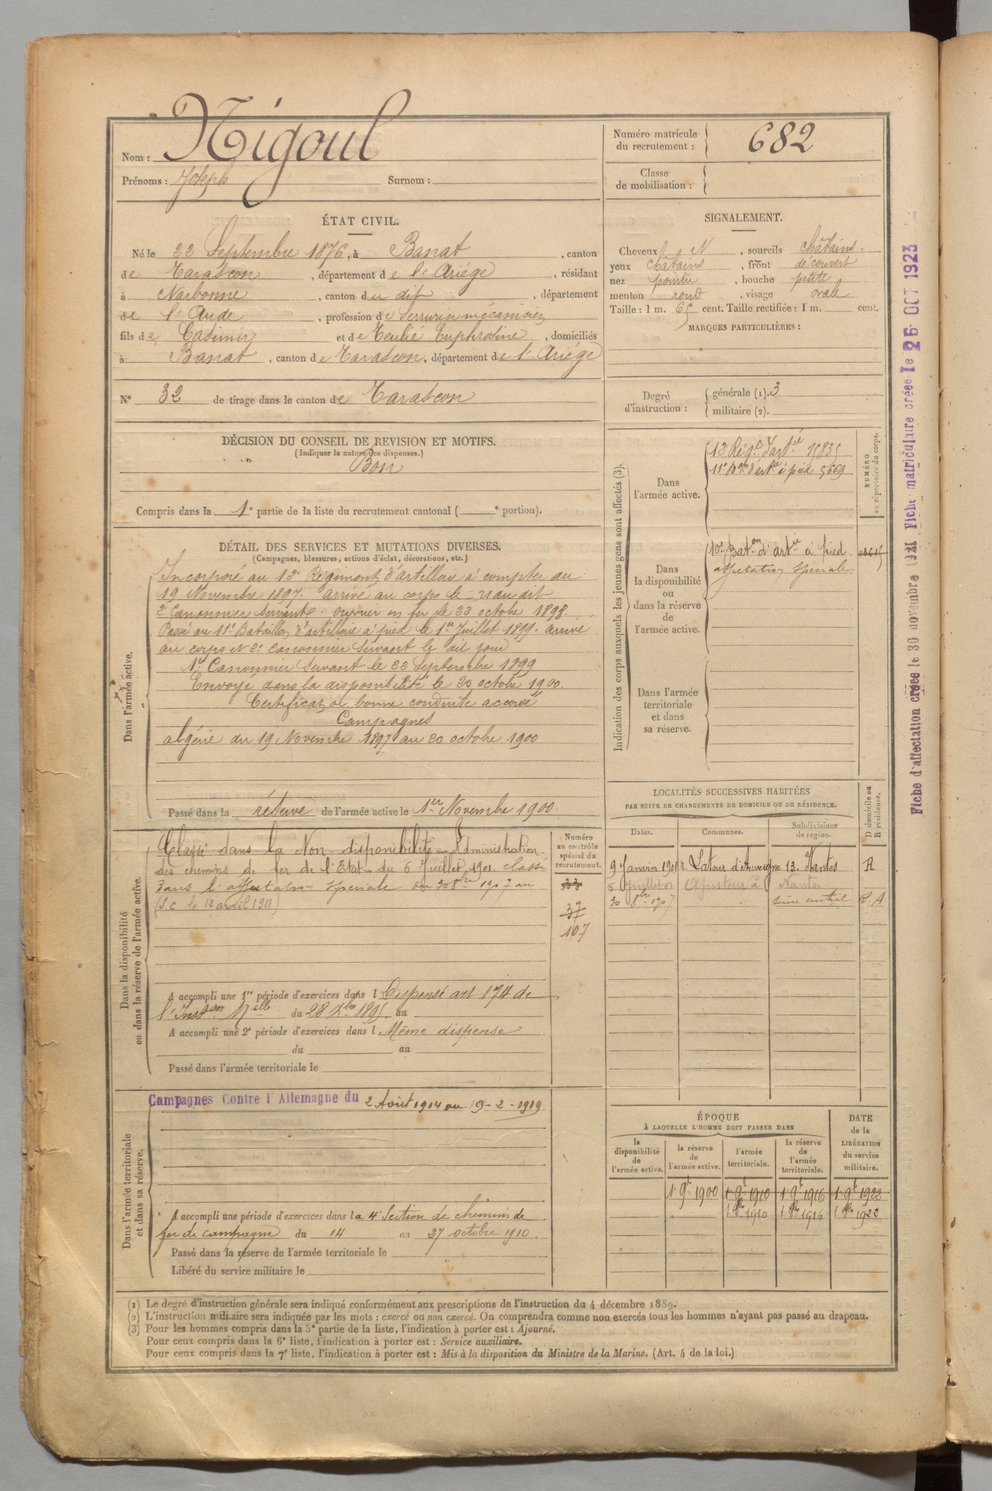 Nom : Nigoul
Prénoms : Joseph Surnom :
Numéro matricule du recrutement : 682
Classe de mobilisation :
ÉTAT CIVIL.
Né le 22 Septembre 1876, à Banat, canton
de Tarascon, département de l'Ariège, résidant
à Narbonne, canton du dit, département
de l'Aude, profession de Serrurier mécanicien
fils de Casimir et de Teulié Euphrosine, domiciliés
à Banat, canton de Tarascon, département de l'Ariège
N° 32 de tirage dans le canton de Tarascon
SIGNALEMENT.
Cheveux N, sourcils châtains.
yeux châtains, front découvert
nez pointu, bouche petite
menton rond, visage oval
Taille : 1 m. 65 cent. Taille rectifiée : 1 m. cent.
MARQUES PARTICULIÈRES :
Degré d'instruction : générale (1). 3
militaire (2).
DÉCISION DU CONSEIL DE REVISION ET MOTIFS.
(Indiquer la nature des dispenses.)
Bon
Compris dans la 1e partie de la liste du recrutement cantonal ( e portion).
DÉTAIL DES SERVICES ET MUTATIONS DIVERSES.
(Campagnes, blessures, actions d'éclat, décorations, etc.)
Dans l'armée active.
Incorporé au 13e Régiment d'artillerie à compter du
19 Novembre 1897. arrivé au corps le néau dit
2e Canonnier Servant ouvrier en fer le 23 octobre 1898
Passé au 11e Bataillon d'artillerie à pied le 1er Juillet 1899. arrivé
au corps et 2e canonnier servant le dit jour
1er Canonnier Servant le 23 Septembre 1899
Envoyé dans la disponibilité le 20 octobre 1900.
Certificat de bonne conduite accordé
Campagnes
algérie du 19 Novembre 1897 au 20 octobre 1900
Passé dans la réserve de l'armée active le 1er Novembre 1900
Indication des corps auxquels les jeunes gens sont affectés (3).
NUMÉRO au répertoire du corps.
Dans l'armée active.
13 Régt d'artie 15835
11e Bon d'artie à pied 5669
Dans la disponibilité ou dans la réserve de l'armée active.
10e Baton d'artie à pied
affectation spéciale
Dans l'armée territoriale et dans sa réserve.
Dans la disponibilité ou dans la réserve de l'armée active.
Classé dans la Non disponibilité Administration
des chemins de fer de l'Etat du 6 Juillet 1901. classé
dans l'affectation spéciale du 30 8bre 1907 au
(S.C. le 12 avril 1911)
A accompli une 1re période d'exercices dans l Dispensé art 174 de
l'Inston Melle du 28 Xbre 1895 au
A accompli une 2e période d'exercices dans l Même dispense
du au
Passé dans l'armée territoriale le
Numéro au contrôle spécial du recrutement.
33
37
107
LOCALITÉS SUCCESSIVES HABITÉES
PAR SUITE DE CHANGEMENTS DE DOMICILE OU DE RÉSIDENCE.
Dates. Communes. Subdivisions de région. D domicile ou R résidence.
9 Janvier 1901 Latour d'Auvergne 13. Nantes R
6 Juillet 01 Ajusteur à Nantes
30 8bre 1907 Seine central
Dans l'armée territoriale et dans sa réserve.
Campagnes Contre l'Allemagne du 2 Août 1914 au 9-2-1919
A accompli une période d'exercices dans la 4e Section de chemins de
fer de campagne du 14 au 27 octobre 1910.
Passé dans la réserve de l'armée territoriale le
Libéré du service militaire le
ÉPOQUE
À LAQUELLE L'HOMME DOIT PASSER DANS
DATE de la LIBÉRATION du service militaire.
la disponibilité de l'armée active. la réserve de l'armée active. l'armée territoriale. la réserve de l'armée territoriale.
1 9e 1900 1 9e 1910 1 9e 1916 1 9e 1922
1 8bre 1910 1 8bre 1916 1 8bre 1922
(1) Le degré d'instruction générale sera indiqué conformément aux prescriptions de l'instruction du 4 décembre 1889.
(2) L'instruction militaire sera indiquée par les mots : exercé ou non exercé. On comprendra comme non exercés tous les hommes n'ayant pas passé au drapeau.
(3) Pour les hommes compris dans la 5e partie de la liste, l'indication à porter est : Ajourné.
Pour ceux compris dans la 6e liste, l'indication à porter est : Service auxiliaire.
Pour ceux compris dans la 7e liste, l'indication à porter est : Mis à la disposition du Ministre de la Marine. (Art. 4 de la loi.)
Fiche d'affectation créée le 30 novembre 1921 Fiche matriculaire créée le 26 OCT 1923